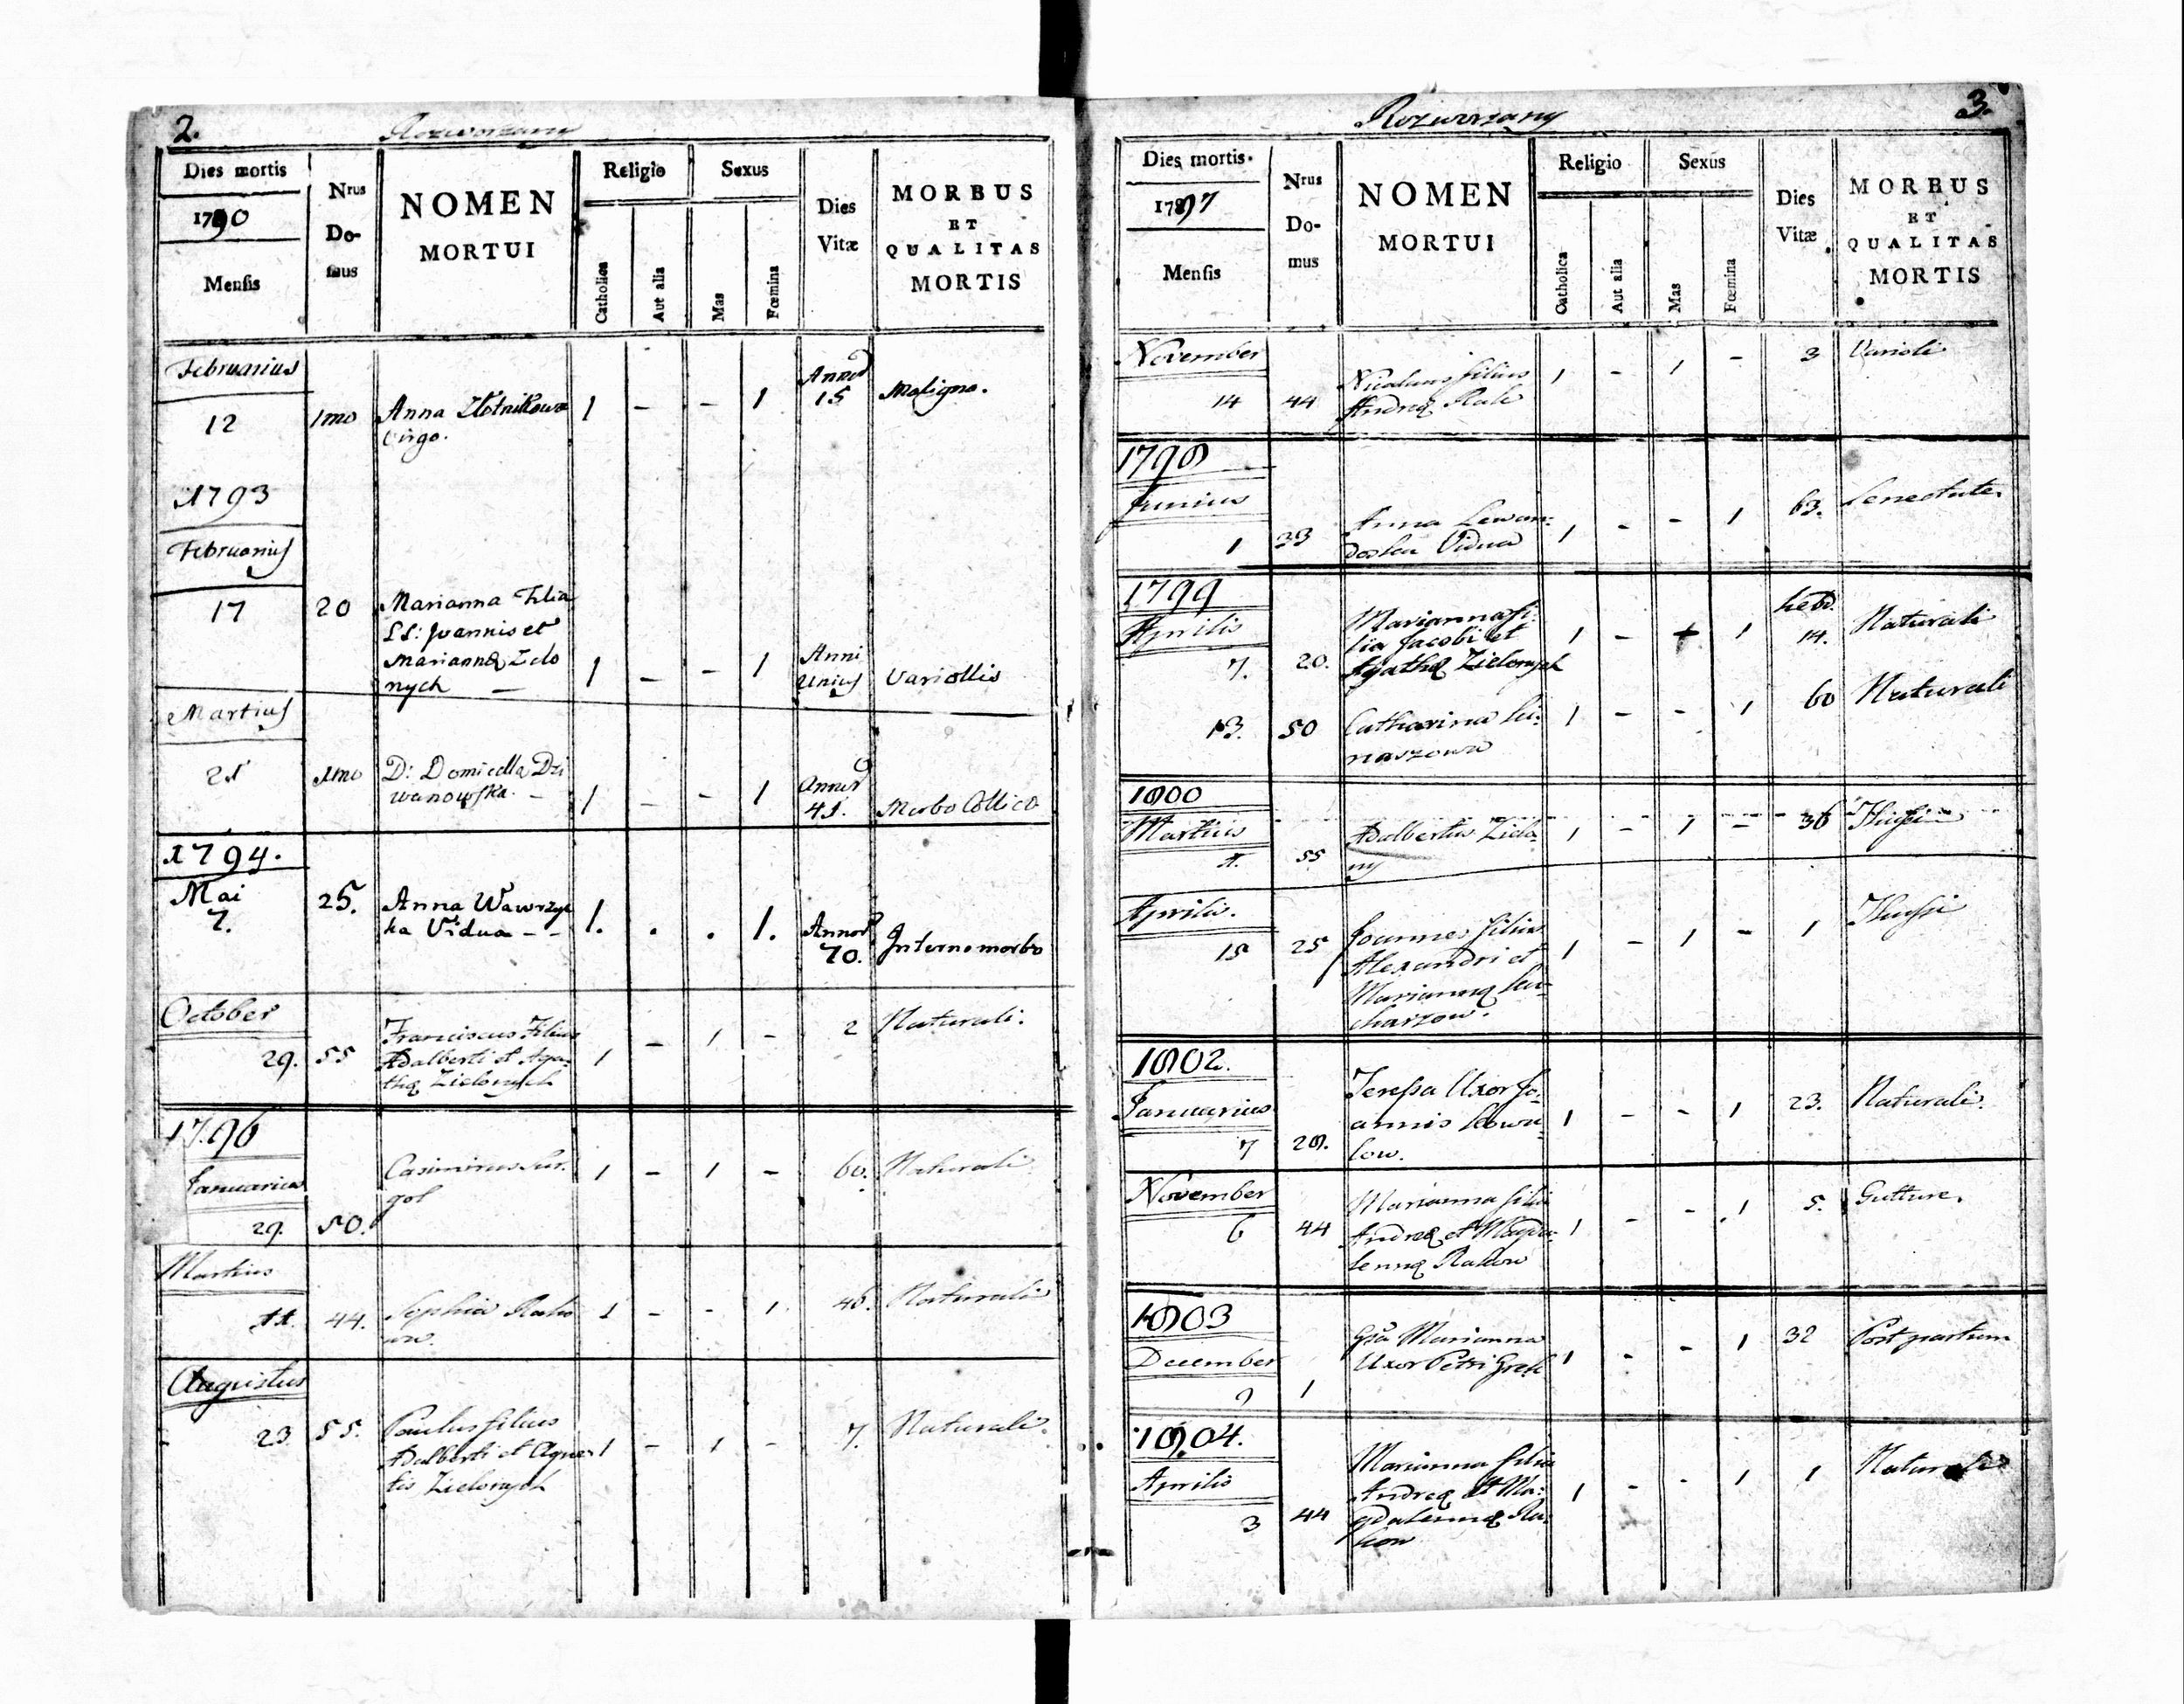 2.
Rozworzany
Dies mortis
1790
Mensis
Nrus
Do-
mus
NOMEN
MORTUI
Religio
Catholica
Aut alia
Sexus
Mas
Fœmina
Dies
Vitæ
MORBUS
ET
QUALITAS
MORTIS
Februarius
12 1mo Anna Zlotnikowa 1 - - 1 Annor 15 Maligna.
Virgo.
1793
Februarius
17 20 Marianna Filia
LL: Joannis et
Mariannæ Zielo
nych — 1 - - 1 Anni Unius Variollis
Martius
21 1mo D: Domicella Dzi
wanowska. - 1 - - 1 Annor 41. Morbo Collico
1794.
Mai
7. 25. Anna Wawrzyc
ka Vidua - - 1. . . 1. Annor 70. Interno morbo
October
29. 55 Franciscus Filius
Adalberti et Aga-
thæ Zielonych 1 - 1 - 2 Naturali.
1796
Januarius
29. 50. Casimirus Sur-
gol 1 - 1 - 60. Naturali
Martius
11. 44. Sophia Rako
1 - - 1. 46. Naturali
Augustus
23 55. Paulus filius
Adalberti et Agne-
tis Zielonych 1 - 1 - 7. Naturali.
3.
Rozworzany
Dies mortis.
1797
Mensis
Nrus
Do-
mus
NOMEN
MORTUI
Religio
Catholica
Aut alia
Sexus
Mas
Fœmina
Dies
Vitæ
MORBUS
ET
QUALITAS
MORTIS
November
14 44 Nicolaus filius
Andreæ 1 - 1 - 3 Varioli
1798
Junius
1 33 Anna Lewan-
doska Vidua 1 - - 1 63. Senectute
1799
Aprilis
7. 20. Marianna fi-
lia Jacobi et
Agathæ Zielonych 1 - + 1 hebd. 14. Naturali
13. 50 Catharina
1 - - 1 60 Naturali
1800
Martius
55 Adalbertus Zielo-
ny 1 - 1 - 36
Aprilis.
15 25 Joannes filius
Alexandri et
Mariannæ Ku-
charzow. 1 - 1 - 1
1802.
Januarius
7 28. Teressa Uxor Jo-
annis Kowa-
low. 1 - - 1 23. Naturali.
November
6 44 Marianna filia
Andreæ et Magda-
lennæ Rakow 1 - - 1 5. Gutture.
1803
December
1 Gsa Marianna
Uxor Petri 1 - - 1 32 Post partum
1804.
Aprilis
3 44 Marianna filia
Andreæ et Ma-
gdalennæ Ra-
kow 1 - - 1 1 Naturali